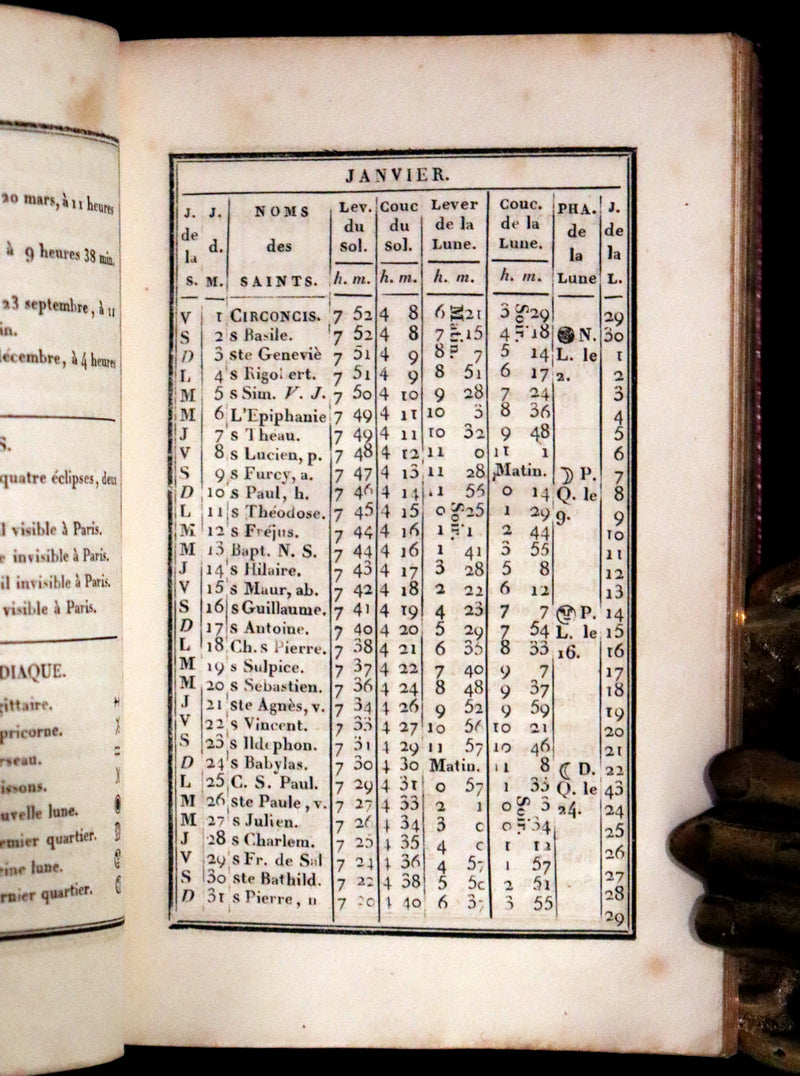 20 mars, à 11 heures
à 9 heures 38 min.
23 septembre, à 11
in.
décembre, à 4 heures
S.
quatre éclipses, deu
l visible à Paris.
e invisible à Paris.
il invisible à Paris.
visible à Paris.
DIAQUE.
gittaire.
pricorne.
rseau.
issons.
uvelle lune.
emier quartier.
eine lune.
rnier quartier.
JANVIER.
J. de la S. J. d. M. NOMS des SAINTS. Lev. du sol. Couc du sol. Lever de la Lune. Couc. de la Lune. PHA. de la Lune J. de la L.
h. m. h. m. h. m. h. m.
V 1 CIRCONCIS. 7 52 4 8 6 Matin. 21 3 Soir. 29 29
S 2 s Basile. 7 52 4 8 7 15 4 18 N. 30
D 3 ste Geneviè 7 51 4 9 8 7 5 14 L. le 1
L 4 s Rigol ert. 7 51 4 9 8 51 6 17 2. 2
M 5 s Sim. V. J. 7 50 4 10 9 28 7 24 3
M 6 L'Epiphanie 7 49 4 11 10 3 8 36 4
J 7 s Theau. 7 49 4 11 10 32 9 48 5
V 8 s Lucien, p. 7 48 4 12 11 0 11 1 6
S 9 s Furcy, a. 7 47 4 13 11 28 Matin. P. 7
D 10 s Paul, h. 7 46 4 14 11 56 0 14 Q. le 8
L 11 s Théodose. 7 45 4 15 0 Soir. 25 1 29 9. 9
M 12 s Fréjus. 7 44 4 16 1 1 2 44 10
M 13 Bapt. N. S. 7 44 4 16 1 41 3 55 11
J 14 s Hilaire. 7 43 4 17 3 28 5 8 12
V 15 s Maur, ab. 7 42 4 18 2 22 6 12 13
S 16 s Guillaume. 7 41 4 19 4 23 7 7 P. 14
D 17 s Antoine. 7 40 4 20 5 29 7 54 L. le 15
L 18 Ch. s Pierre. 7 38 4 21 6 35 8 33 16. 16
M 19 s Sulpice. 7 37 4 22 7 40 9 7 17
M 20 s Sebastien. 7 36 4 24 8 48 9 37 18
J 21 ste Agnès, v. 7 34 4 26 9 52 9 59 19
V 22 s Vincent. 7 33 4 27 10 56 10 21 20
S 23 s Ildephon. 7 31 4 29 11 57 10 46 21
D 24 s Babylas. 7 30 4 30 Matin. 11 8 D. 22
L 25 C. S. Paul. 7 29 4 31 0 57 1 33 Q. le 43
M 26 ste Paule, v. 7 27 4 33 2 1 0 Soir. 3 24. 24
M 27 s Julien. 7 26 4 34 3 0 34 25
J 28 s Charlem. 7 25 4 35 4 1 12 26
V 29 s Fr. de Sal 7 24 4 36 4 57 1 57 27
S 30 ste Bathild. 7 22 4 38 5 50 2 51 28
D 31 s Pierre, n 7 20 4 40 6 37 3 55 29